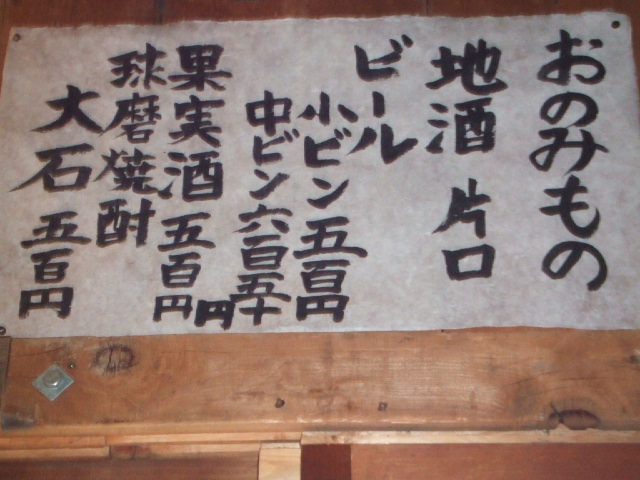 おのみもの
地酒 片口
ビール
小ビン五百円
中ビン六百五十円
果実酒 五百円
球磨焼酎
大石 五百円